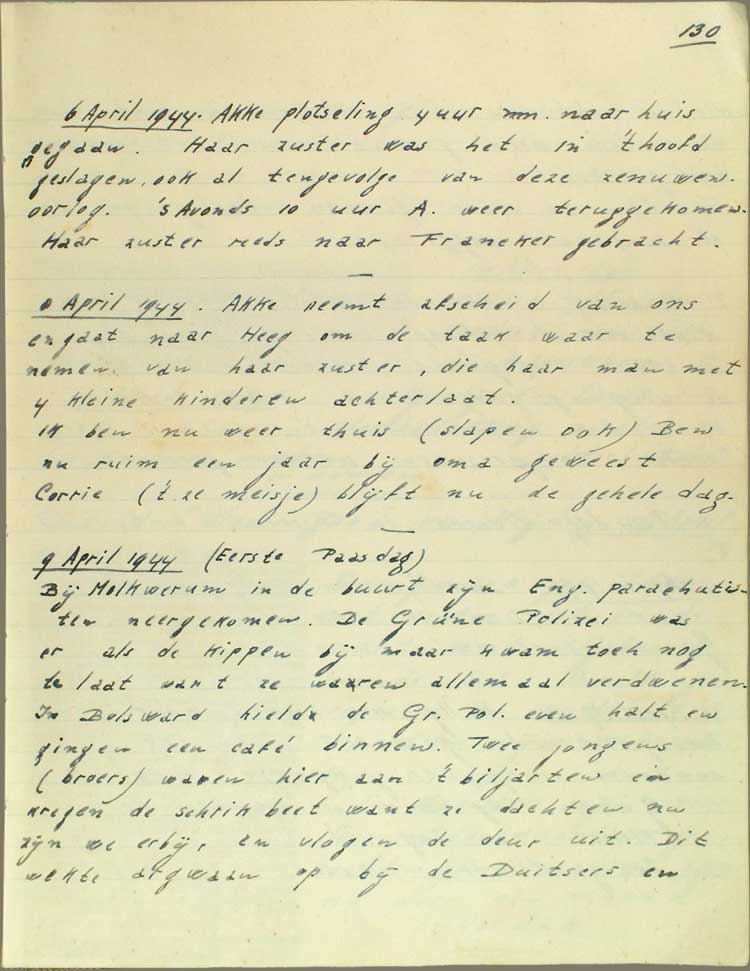 130
6 April 1944. Akke plotseling 4 uur nm. naar huis
gegaan. Haar zuster was het in 't hoofd
geslagen, ook al tengevolge van deze zenuwen-
oorlog. 's Avonds 10 uur A. weer teruggekomen.
Haar zuster reeds naar Franeker gebracht.
April 1944. Akke neemt afscheid van ons
en gaat naar Heeg om de taak waar te
nemen van haar zuster, die haar man met
4 kleine kinderen achterlaat.
Ik ben nu weer thuis (slapen ook) Ben
nu ruim een jaar bij oma geweest
Corrie ('t ze meisje) blijft nu de gehele dag.
9 April 1944 (Eerste Paasdag)
Bij Molkwerum in de buurt zijn Eng. parachutis-
ten neergekomen. De Grüne Polizei was
er als de kippen bij maar kwam toch nog
te laat want ze waren allemaal verdwenen.
In Bolsward hield de Gr. Pol. even halt en
gingen een café binnen. Twee jongens
(broers) waren hier aan 't biljarten en
kregen de schrik beet want ze dachten nu
zijn we erbij, en vlogen de deur uit. Dit
wekte argwaan op bij de Duitsers en